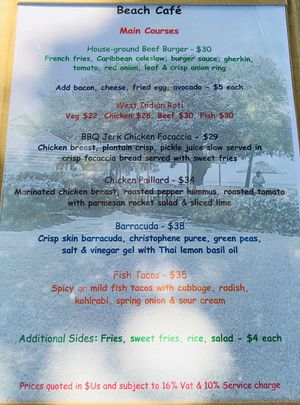 Beach Café
Main Courses
House-ground Beef Burger - $30
French fries, Caribbean coleslaw, burger sauce, gherkin,
tomato, red onion, leaf & crisp onion ring
Add bacon, cheese, fried egg, avocado - $5 each
West Indian Roti
Veg $22, Chicken $28, Beef $30, Fish $30
BBQ Jerk Chicken Focaccia - $29
Chicken breast, plantain crisp, pickle juice slaw served in
crisp focaccia bread served with sweet fries
Chicken Paillard - $34
Marinated chicken breast, roasted pepper hummus, roasted tomato
with parmesan rocket salad & sliced lime
Barracuda - $38
Crisp skin barracuda, christophene puree, green peas,
salt & vinegar gel with Thai lemon basil oil
Fish Tacos - $35
Spicy or mild fish tacos with cabbage, radish,
kohlrabi, spring onion & sour cream
Additional Sides: Fries, sweet fries, rice, salad - $4 each
Prices quoted in $Us and subject to 16% Vat & 10% Service charge